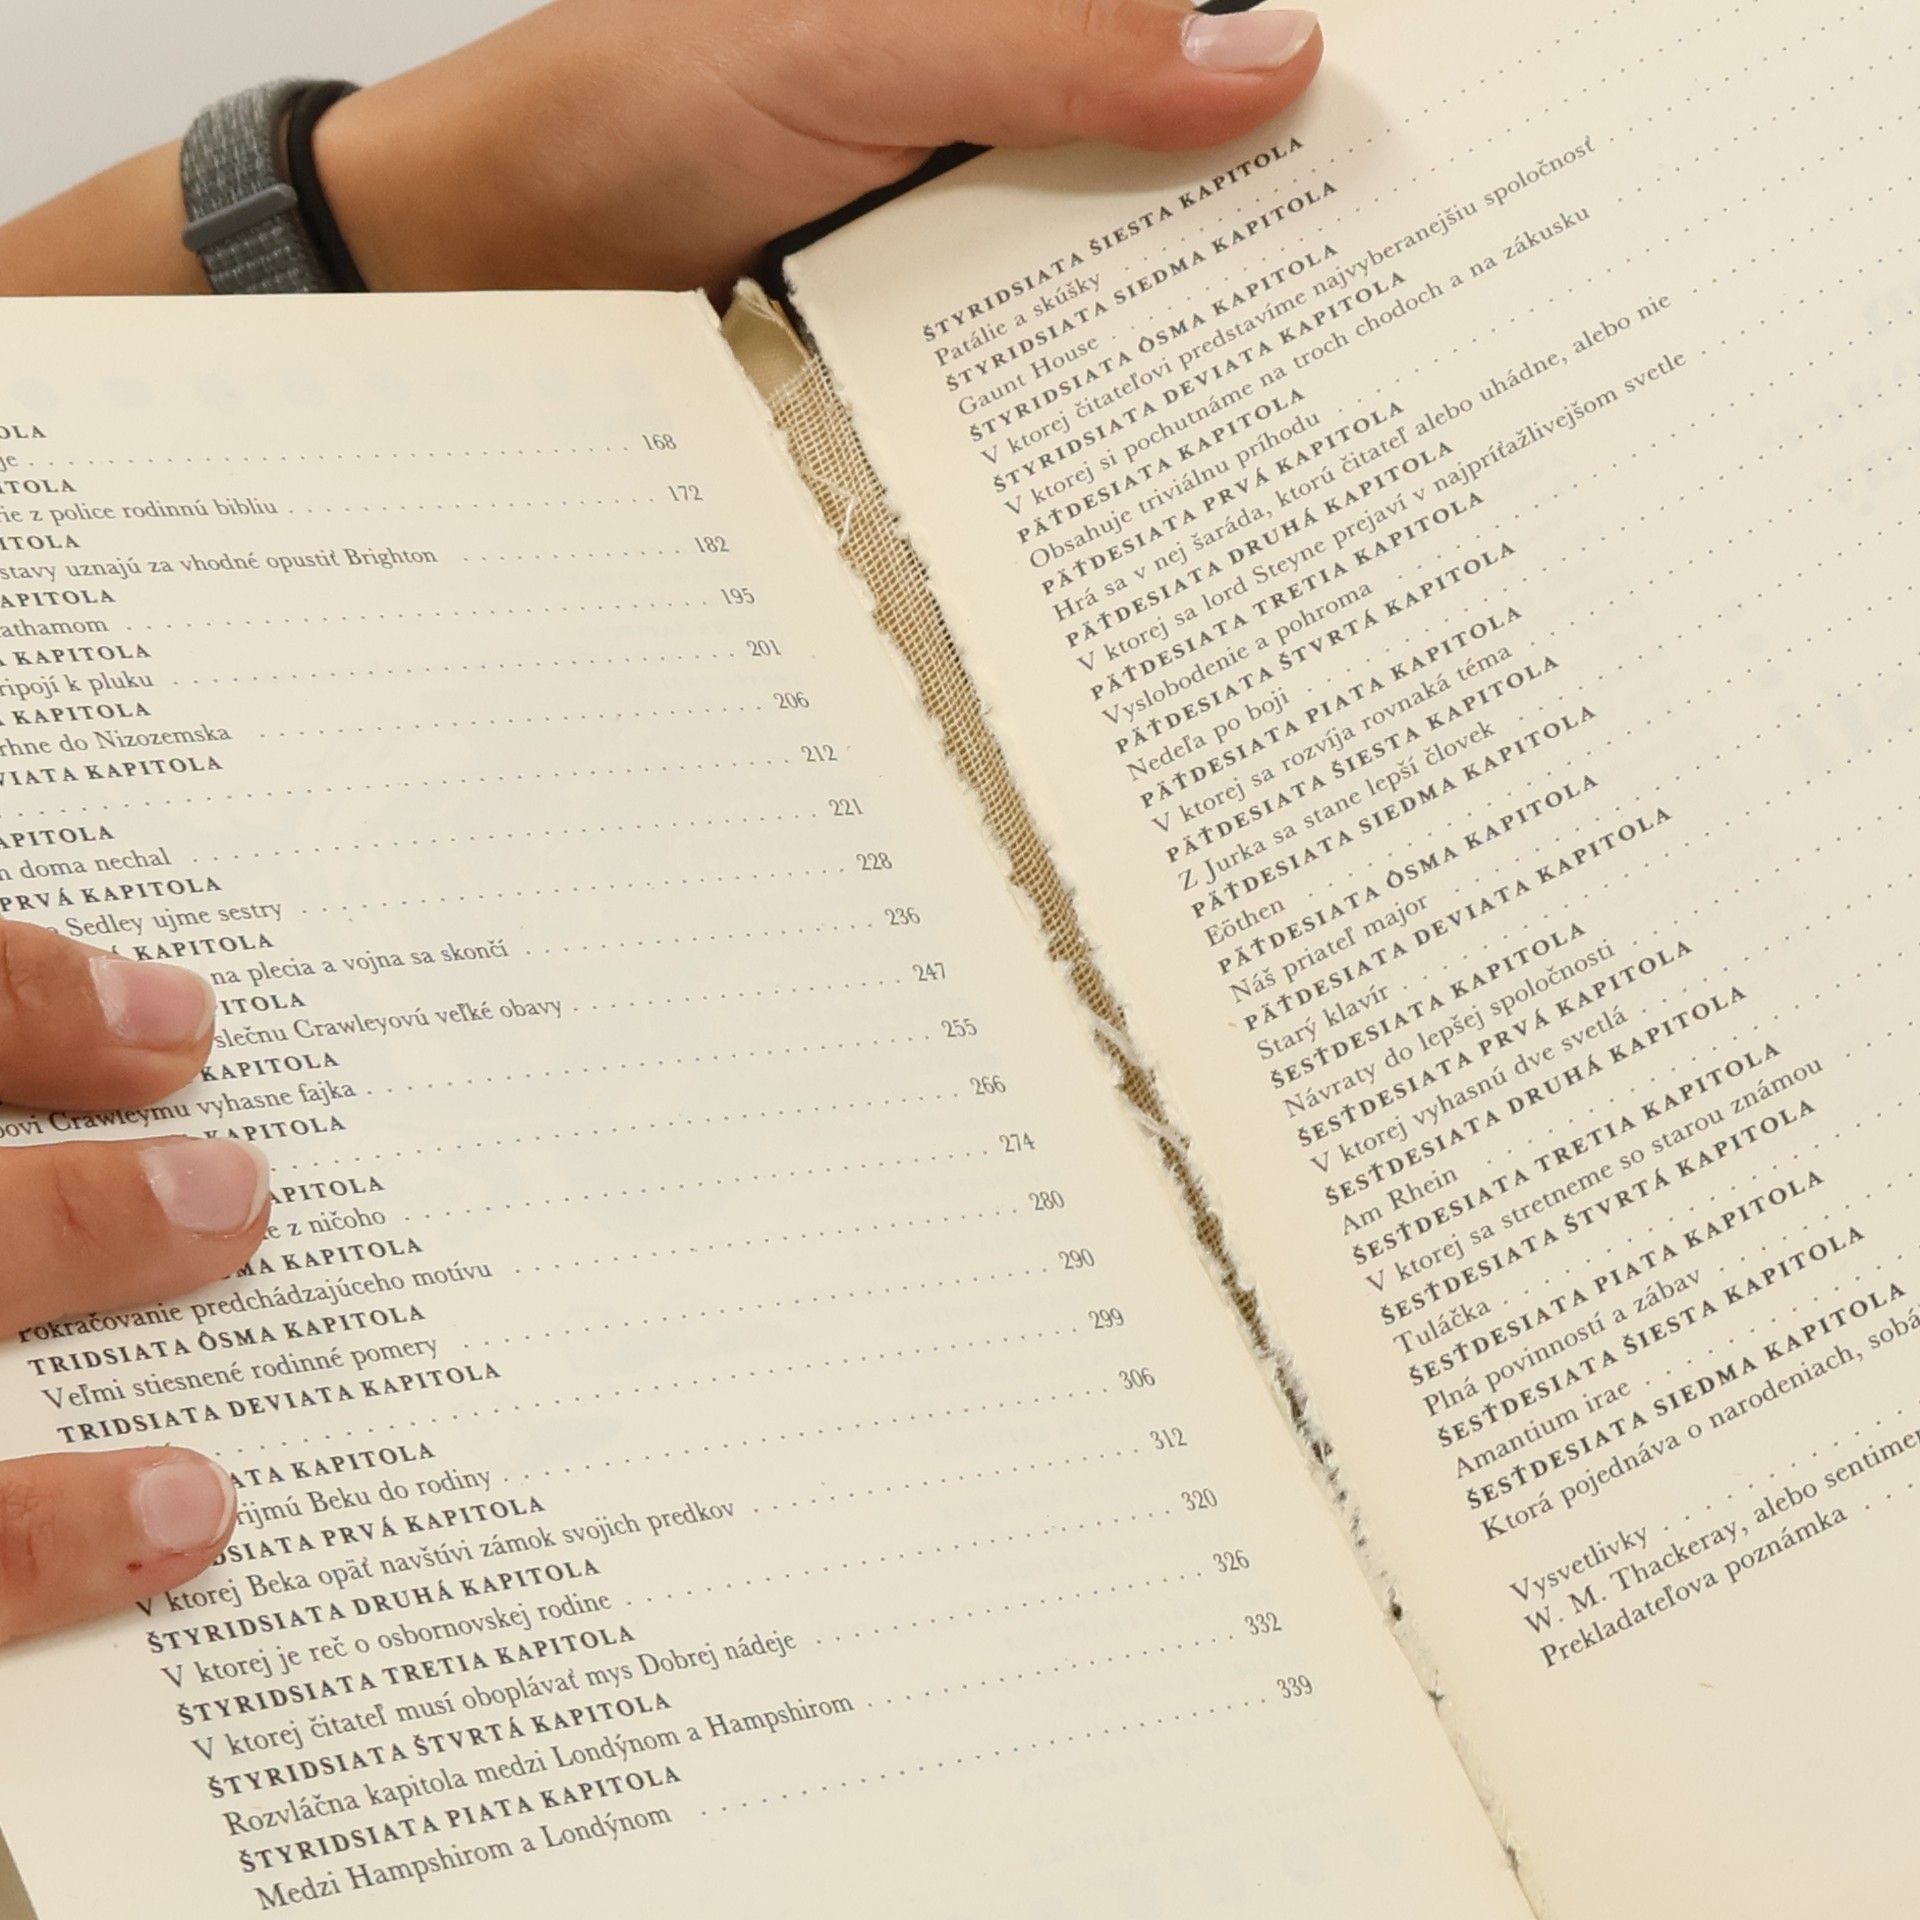 OLA
je . . . . . . . . . . . . . . . . . . . . 168
ITOLA
ie z police rodinnú bibliu . . . . . . . . . . 172
ITOLA
stavy uznajú za vhodné opustiť Brighton . . . . . . . . . . 182
KAPITOLA
athamom . . . . . . . . . . 195
KAPITOLA
ripojí k pluku . . . . . . . . . . 201
KAPITOLA
rhne do Nizozemska . . . . . . . . . . 206
VIATA KAPITOLA
. . . . . . . . . . 212
APITOLA
doma nechal . . . . . . . . . . 221
PRVÁ KAPITOLA
Sedley ujme sestry . . . . . . . . . . 228
KAPITOLA
na plecia a vojna sa skončí . . . . . . . . . . 236
PITOLA
slečnu Crawleyovú veľké obavy . . . . . . . . . . 247
KAPITOLA
ovi Crawleymu vyhasne fajka . . . . . . . . . . 255
KAPITOLA
. . . . . . . . . . 266
APITOLA
z ničoho . . . . . . . . . . 274
MA KAPITOLA
Pokračovanie predchádzajúceho motívu . . . . . . . . . . 280
TRIDSIATA ÔSMA KAPITOLA
Veľmi stiesnené rodinné pomery . . . . . . . . . . 290
TRIDSIATA DEVIATA KAPITOLA
. . . . . . . . . . 299
ATA KAPITOLA
rijmú Beku do rodiny . . . . . . . . . . 306
DSIATA PRVÁ KAPITOLA
V ktorej Beka opäť navštívi zámok svojich predkov . . . . . . . . . . 312
ŠTYRIDSIATA DRUHÁ KAPITOLA
V ktorej je reč o osbornovskej rodine . . . . . . . . . . 320
ŠTYRIDSIATA TRETIA KAPITOLA
V ktorej čitateľ musí oboplávať mys Dobrej nádeje . . . . . . . . . . 326
ŠTYRIDSIATA ŠTVRTÁ KAPITOLA
Rozvláčna kapitola medzi Londýnom a Hampshirom . . . . . . . . . . 332
ŠTYRIDSIATA PIATA KAPITOLA
Medzi Hampshirom a Londýnom . . . . . . . . . . 339
ŠTYRIDSIATA ŠIESTA KAPITOLA
Patálie a skúšky . . . . . . . . . .
ŠTYRIDSIATA SIEDMA KAPITOLA
Gaunt House . . . . . . . . . .
ŠTYRIDSIATA ÔSMA KAPITOLA
V ktorej čitateľovi predstavíme najvyberanejšiu spoločnosť . . . . . . . . . .
ŠTYRIDSIATA DEVIATA KAPITOLA
V ktorej si pochutnáme na troch chodoch a na zákusku . . . . . . . . . .
PÄŤDESIATA KAPITOLA
Obsahuje triviálnu príhodu . . . . . . . . . .
PÄŤDESIATA PRVÁ KAPITOLA
Hrá sa v nej šaráda, ktorú čitateľ alebo uhádne, alebo nie
PÄŤDESIATA DRUHÁ KAPITOLA
V ktorej sa lord Steyne prejaví v najpríťažlivejšom svetle . . . . . . . . . .
PÄŤDESIATA TRETIA KAPITOLA
Vyslobodenie a pohroma . . . . . . . . . .
PÄŤDESIATA ŠTVRTÁ KAPITOLA
Nedeľa po boji . . . . . . . . . .
PÄŤDESIATA PIATA KAPITOLA
V ktorej sa rozvíja rovnaká téma . . . . . . . . . .
PÄŤDESIATA ŠIESTA KAPITOLA
Z Jurka sa stane lepší človek . . . . . . . . . .
PÄŤDESIATA SIEDMA KAPITOLA
Eöthen . . . . . . . . . .
PÄŤDESIATA ÔSMA KAPITOLA
Náš priateľ major . . . . . . . . . .
PÄŤDESIATA DEVIATA KAPITOLA
Starý klavír . . . . . . . . . .
ŠESŤDESIATA KAPITOLA
Návraty do lepšej spoločnosti . . . . . . . . . .
ŠESŤDESIATA PRVÁ KAPITOLA
V ktorej vyhasnú dve svetlá . . . . . . . . . .
ŠESŤDESIATA DRUHÁ KAPITOLA
Am Rhein . . . . . . . . . .
ŠESŤDESIATA TRETIA KAPITOLA
V ktorej sa stretneme so starou známou . . . . . . . . . .
ŠESŤDESIATA ŠTVRTÁ KAPITOLA
Tuláčka . . . . . . . . . .
ŠESŤDESIATA PIATA KAPITOLA
Plná povinností a zábav . . . . . . . . . .
ŠESŤDESIATA ŠIESTA KAPITOLA
Amantium irae . . . . . . . . . .
ŠESŤDESIATA SIEDMA KAPITOLA
Ktorá pojednáva o narodeniach, sobá
Vysvetlivky . . . . . . . . . .
W. M. Thackeray, alebo sentimen
Prekladateľova poznámka . . . .